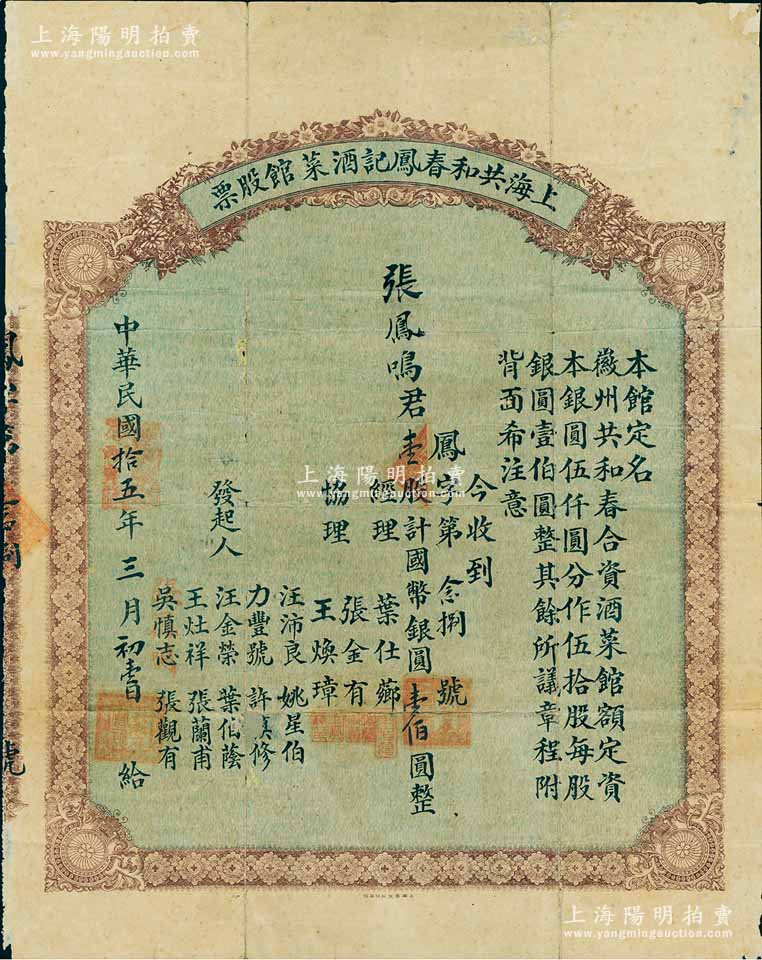 上海陽明拍賣
www.yangmingauction.com
上海共和春鳳記酒菜館股票
本館定名
徽州共和春合資酒菜館額定資
本銀圓伍仟圓分作伍拾股每股
銀圓壹伯圓整其餘所議章程附
背面希注意
今收到
鳳字第念捌號
張鳳鳴君壹股計國幣銀圓壹佰圓整
經理 葉仕薌
張金有
協理 王煥璋
發起人
汪沛良 姚星伯
力豐號 許 修
汪金榮 葉伯蔭
王灶祥 張蘭甫
吳慎志 張觀有
中華民國拾五年三月初壹日給
上海陽明拍賣
www.yangmingauction.com
上海陽明拍賣
www.yangmingauction.com